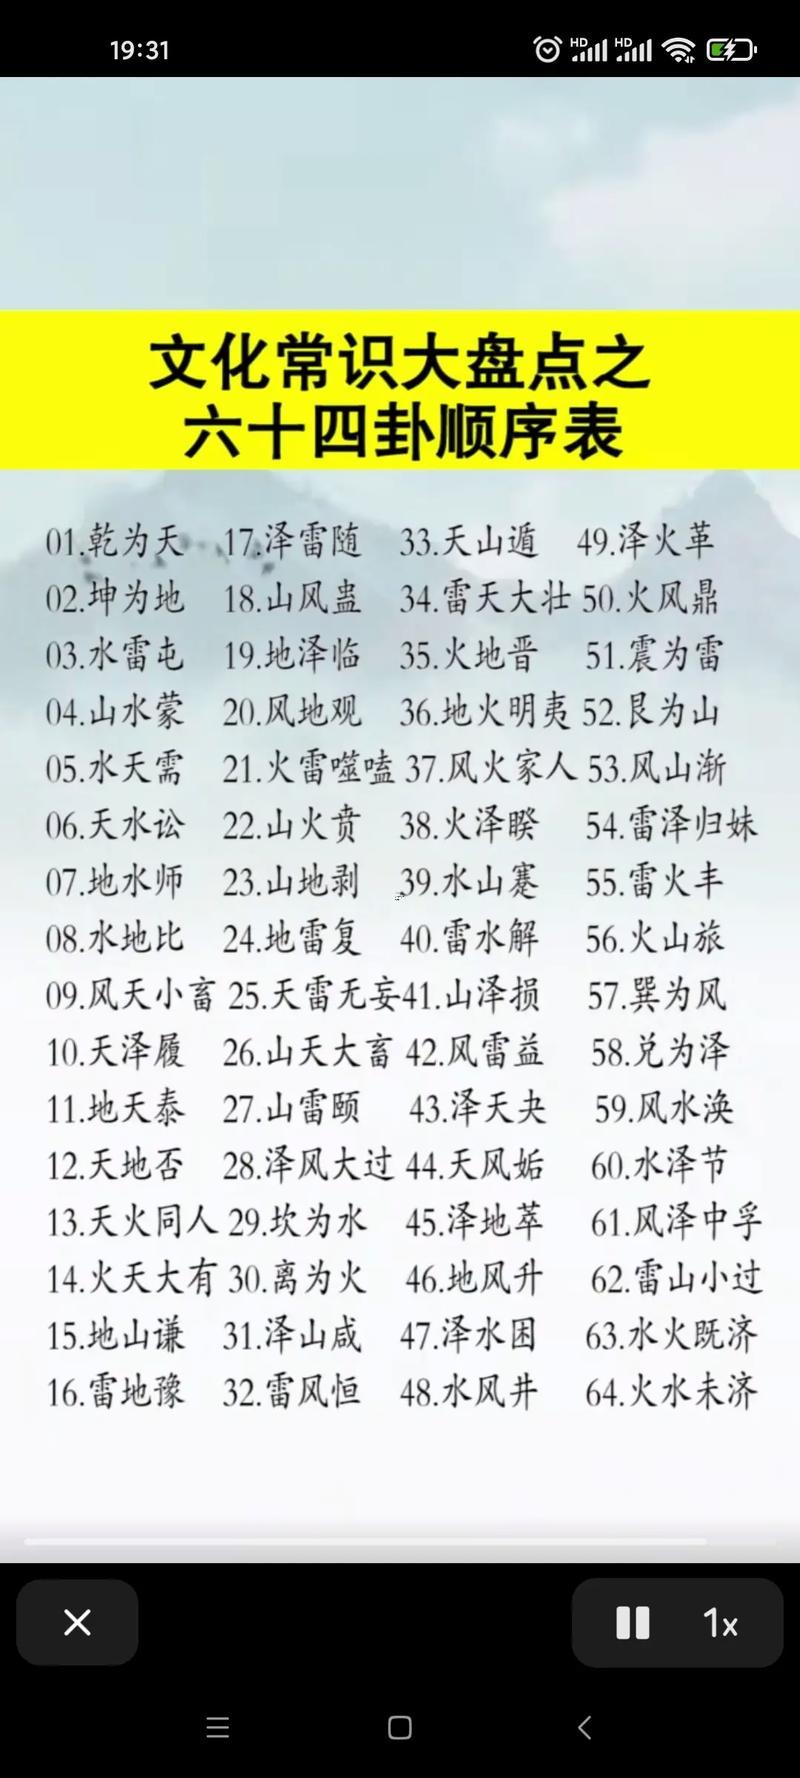 19:31
HD HD
文化常识大盘点之
六十四卦顺序表
01.乾为天 17.泽雷随 33.天山遁 49.泽火革
02.坤为地 18.山风蛊 34.雷天大壮 50.火风鼎
03.水雷屯 19.地泽临 35.火地晋 51.震为雷
04.山水蒙 20.风地观 36.地火明夷 52.艮为山
05.水天需 21.火雷噬嗑 37.风火家人 53.风山渐
06.天水讼 22.山火贲 38.火泽睽 54.雷泽归妹
07.地水师 23.山地剥 39.水山蹇 55.雷火丰
08.水地比 24.地雷复 40.雷水解 56.火山旅
09.风天小畜 25.天雷无妄 41.山泽损 57.巽为风
10.天泽履 26.山天大畜 42.风雷益 58.兑为泽
11.地天泰 27.山雷颐 43.泽天夬 59.风水涣
12.天地否 28.泽风大过 44.天风姤 60.水泽节
13.天火同人 29.坎为水 45.泽地萃 61.风泽中孚
14.火天大有 30.离为火 46.地风升 62.雷山小过
15.地山谦 31.泽山咸 47.泽水困 63.水火既济
16.雷地豫 32.雷风恒 48.水风井 64.火水未济
1x